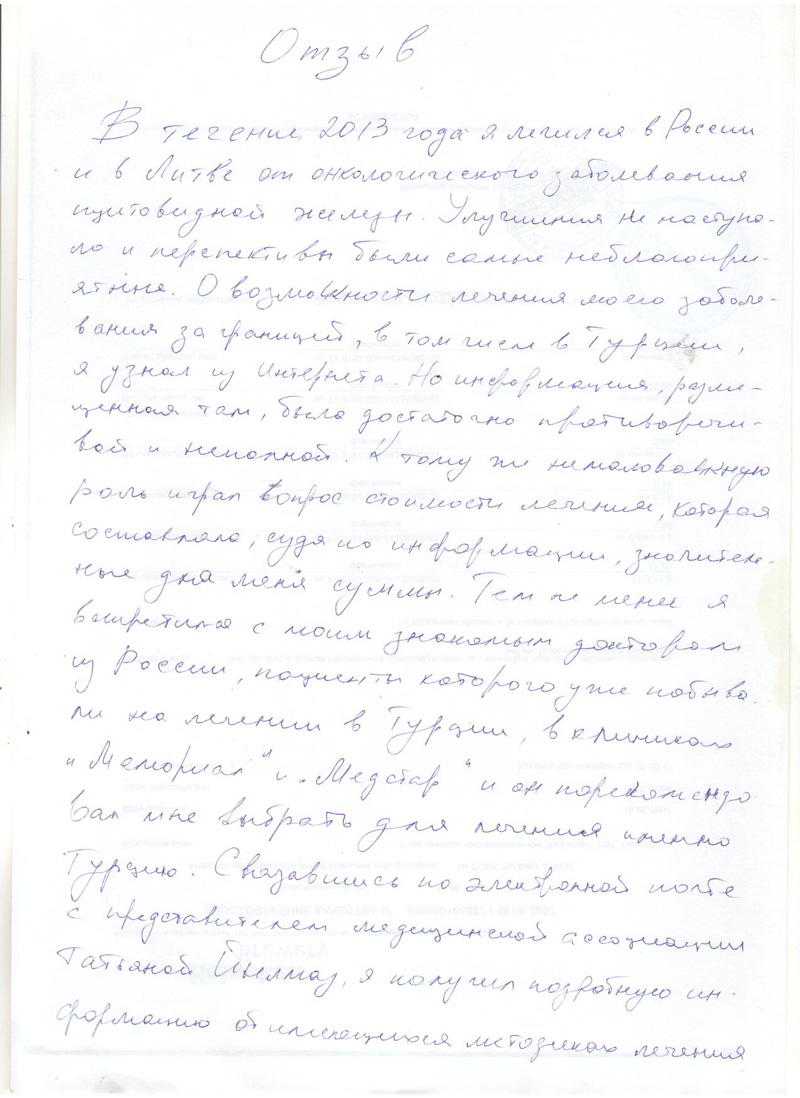 Отзыв
В течение 2013 года я лечился в России
и в Литве от онкологического заболевания
щитовидной железы. Улучшения не наступа-
ло и перспективы были самые неблагопри-
ятные. О возможности лечения моего заболе-
вания за границей, в том числе в Турции,
я узнал из Интернета. Но информация, разме-
щенная там, была достаточно противоречи-
вой и неполной. К тому же немаловажную
роль играл вопрос стоимости лечения, которая
составляла, судя по информации, значитель-
ные для меня суммы. Тем не менее я
встретился с моим знакомым доктором
из России, пациенты которого уже побыва-
ли на лечении в Турции, в клиниках
"Мемориал" и "Медстар" и он порекомендо-
вал мне выбрать для лечения именно
Турцию. Связавшись по электронной почте
с представителем медицинской ассоциации
Татьяной Йылмаз, я получил подробную ин-
формацию об имеющихся методиках лечения